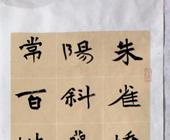 朱雀
陽斜
常百